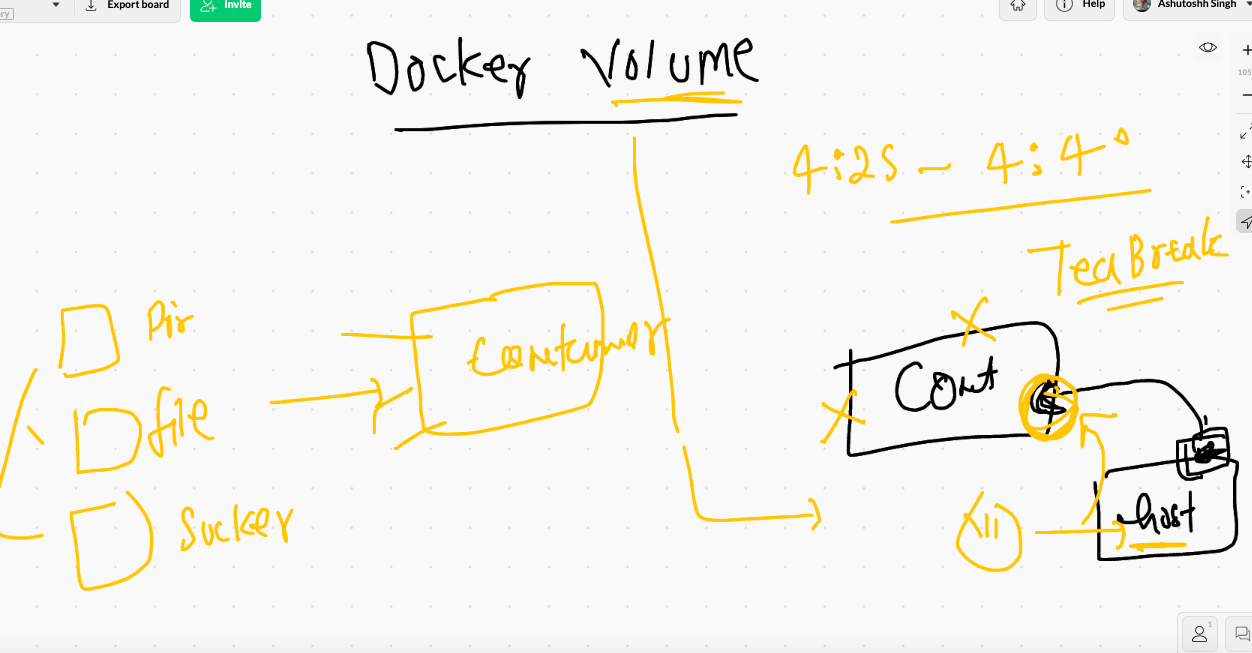 ry
Export board
Invite
Help
Ashutoshh Singh
105
Docker Volume
4:25 - 4:40
Tea Break
Dir
file
Sucker
Container
Cont
host
1